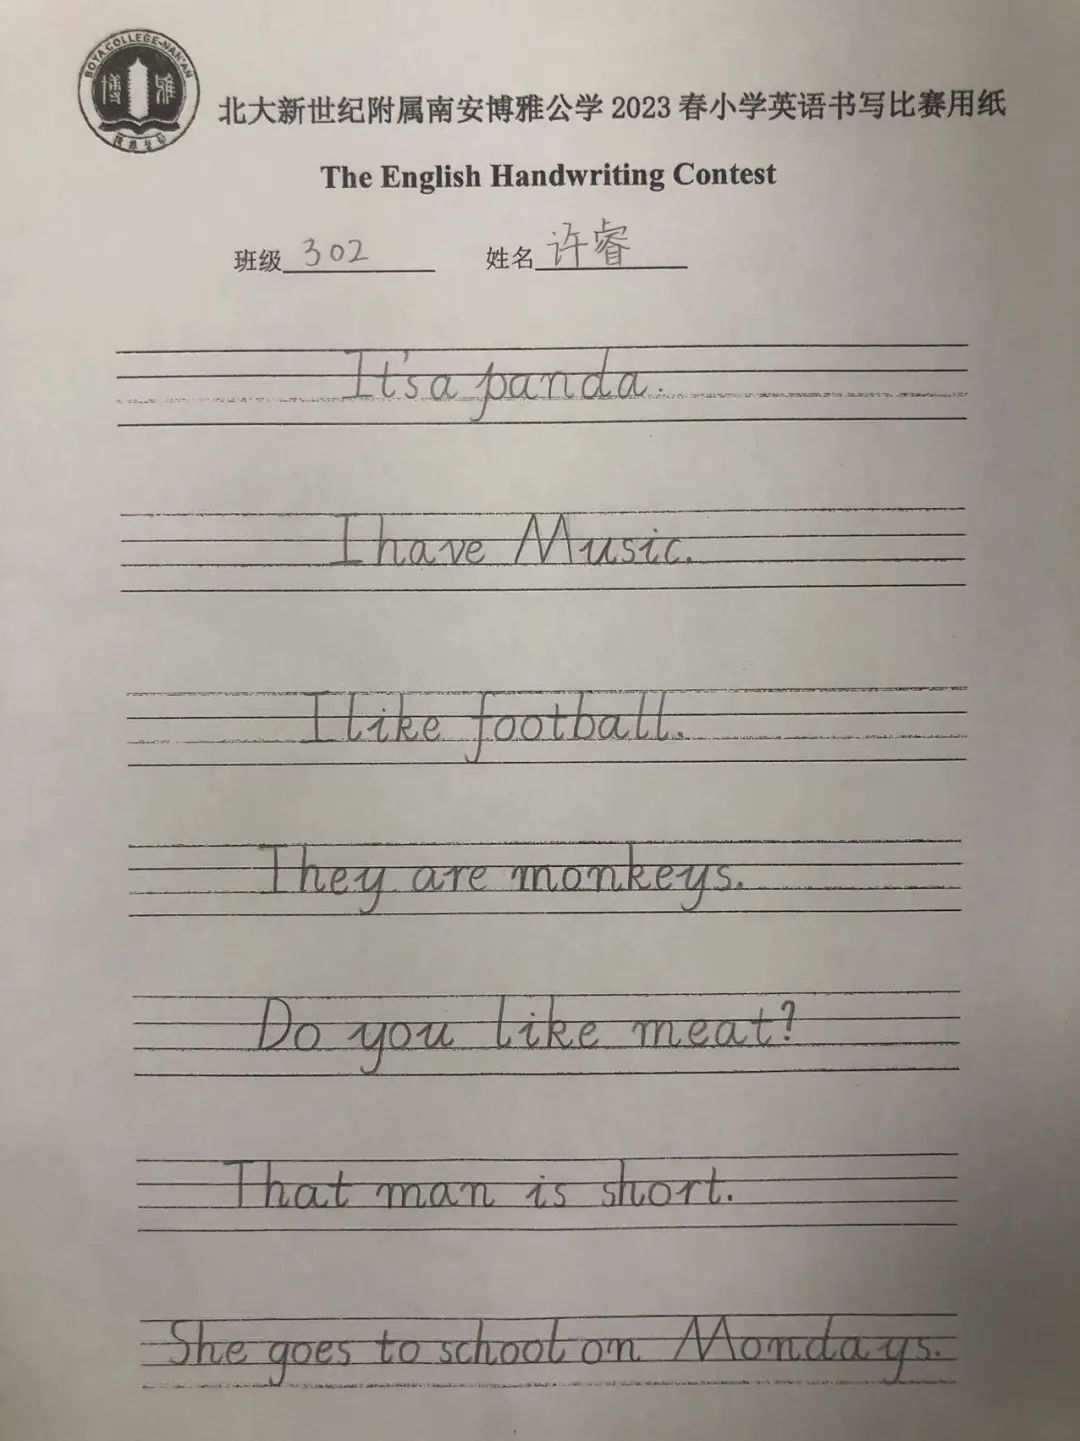 BOYA COLLEGE-NAN'AN
博雅
北大新世纪附属南安博雅公学 2023 春小学英语书写比赛用纸
The English Handwriting Contest
班级 302 姓名 许睿
It's a panda.
I have Music.
I like football.
They are monkeys.
Do you like meat?
That man is short.
She goes to school on Mondays.